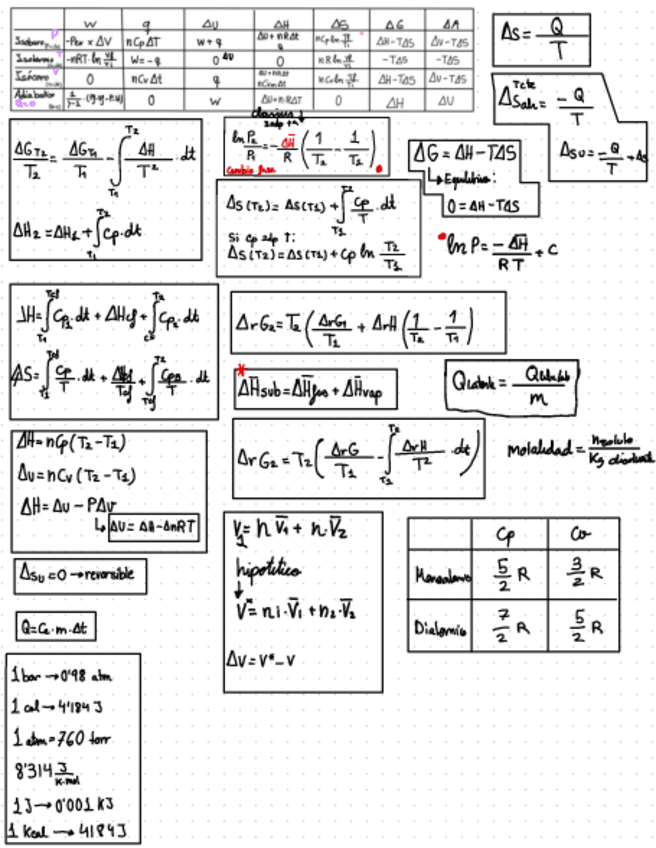 W q ΔU ΔH ΔS ΔG ΔA
Isobaro -Pex × ΔV nCpΔT w + q ΔU + nRΔt q nCp ln T2/T1 ΔH-TΔS ΔU-TΔS
Isotermo -nRT·ln V2/V1 W=-q 0 ΔU 0 nR ln -TΔS -TΔS
Isócoro 0 nCvΔt q nCv ln T2/T1 ΔH-TΔS ΔU-TΔS
Adiabático 0 W ΔU+nRΔT 0 ΔH ΔU
ΔS = Q/T
ΔSalr = -Q/T
ΔSu = -Q/T + ΔS
ΔG T2/T2 = ΔG T1/T1 - ∫T1 T2 ΔH/T² · dt
ΔH2 = ΔH1 + ∫T1 T2 Cp·dt
ln P2/P1 = -ΔH/R (1/T2 - 1/T1)
Cambio fase
ΔG = ΔH - TΔS
↳ Equilibrio:
0 = ΔH - TΔS
ΔS(T2) = ΔS(T1) + ∫T1 T2 Cp/T · dt
Si cp T:
ΔS(T2) = ΔS(T1) + Cp ln T2/T1
ln P = -ΔH/RT + C
ΔH = ∫T1 Tcf Cp1·dt + ΔHcf + ∫cf T2 Cp2·dt
ΔS = ∫T1 Tcf Cp/T · dt + ΔHcf/Tcf + ∫Tcf T2 Cp/T · dt
ΔrG2 = T2 (ΔrG1/T1 + ΔrH (1/T2 - 1/T1))
* ΔH sub = ΔH fus + ΔH vap
Q latente = /m
ΔH = nCp(T2-T1)
ΔU = nCv(T2-T1)
ΔH = ΔU - PΔV
↳ ΔU = ΔH - ΔnRT
ΔrG2 = T2 (ΔrG/T1 - ∫T1 T2 ΔrH/T² · dt)
Molalidad = nsoluto/Kg disolvente
ΔSU = 0 → reversible
V = n1V1 + n·V2
hipotético
↓
V* = n1·V1 + n2·V2
ΔV = V* - V
Cp Cv
Monoatomic 5/2 R 3/2 R
Diatomic 7/2 R 5/2 R
Q = Ce·m·Δt
1 bar → 0'98 atm
1 cal → 4'184 J
1 atm = 760 torr
8'314 J/K·mol
1 J → 0'001 KJ
1 Kcal → 4184 J